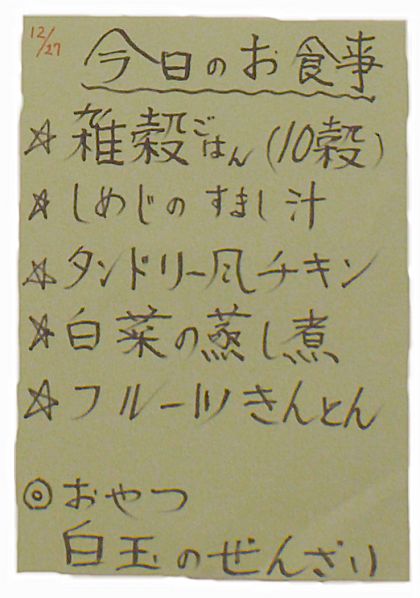 12/27
今日のお食事
☆ 雑穀ごはん(10穀)
☆ しめじのすまし汁
☆ タンドリー風チキン
☆ 白菜の蒸し煮
☆ フルーツきんとん
◎ おやつ
白玉のぜんざい